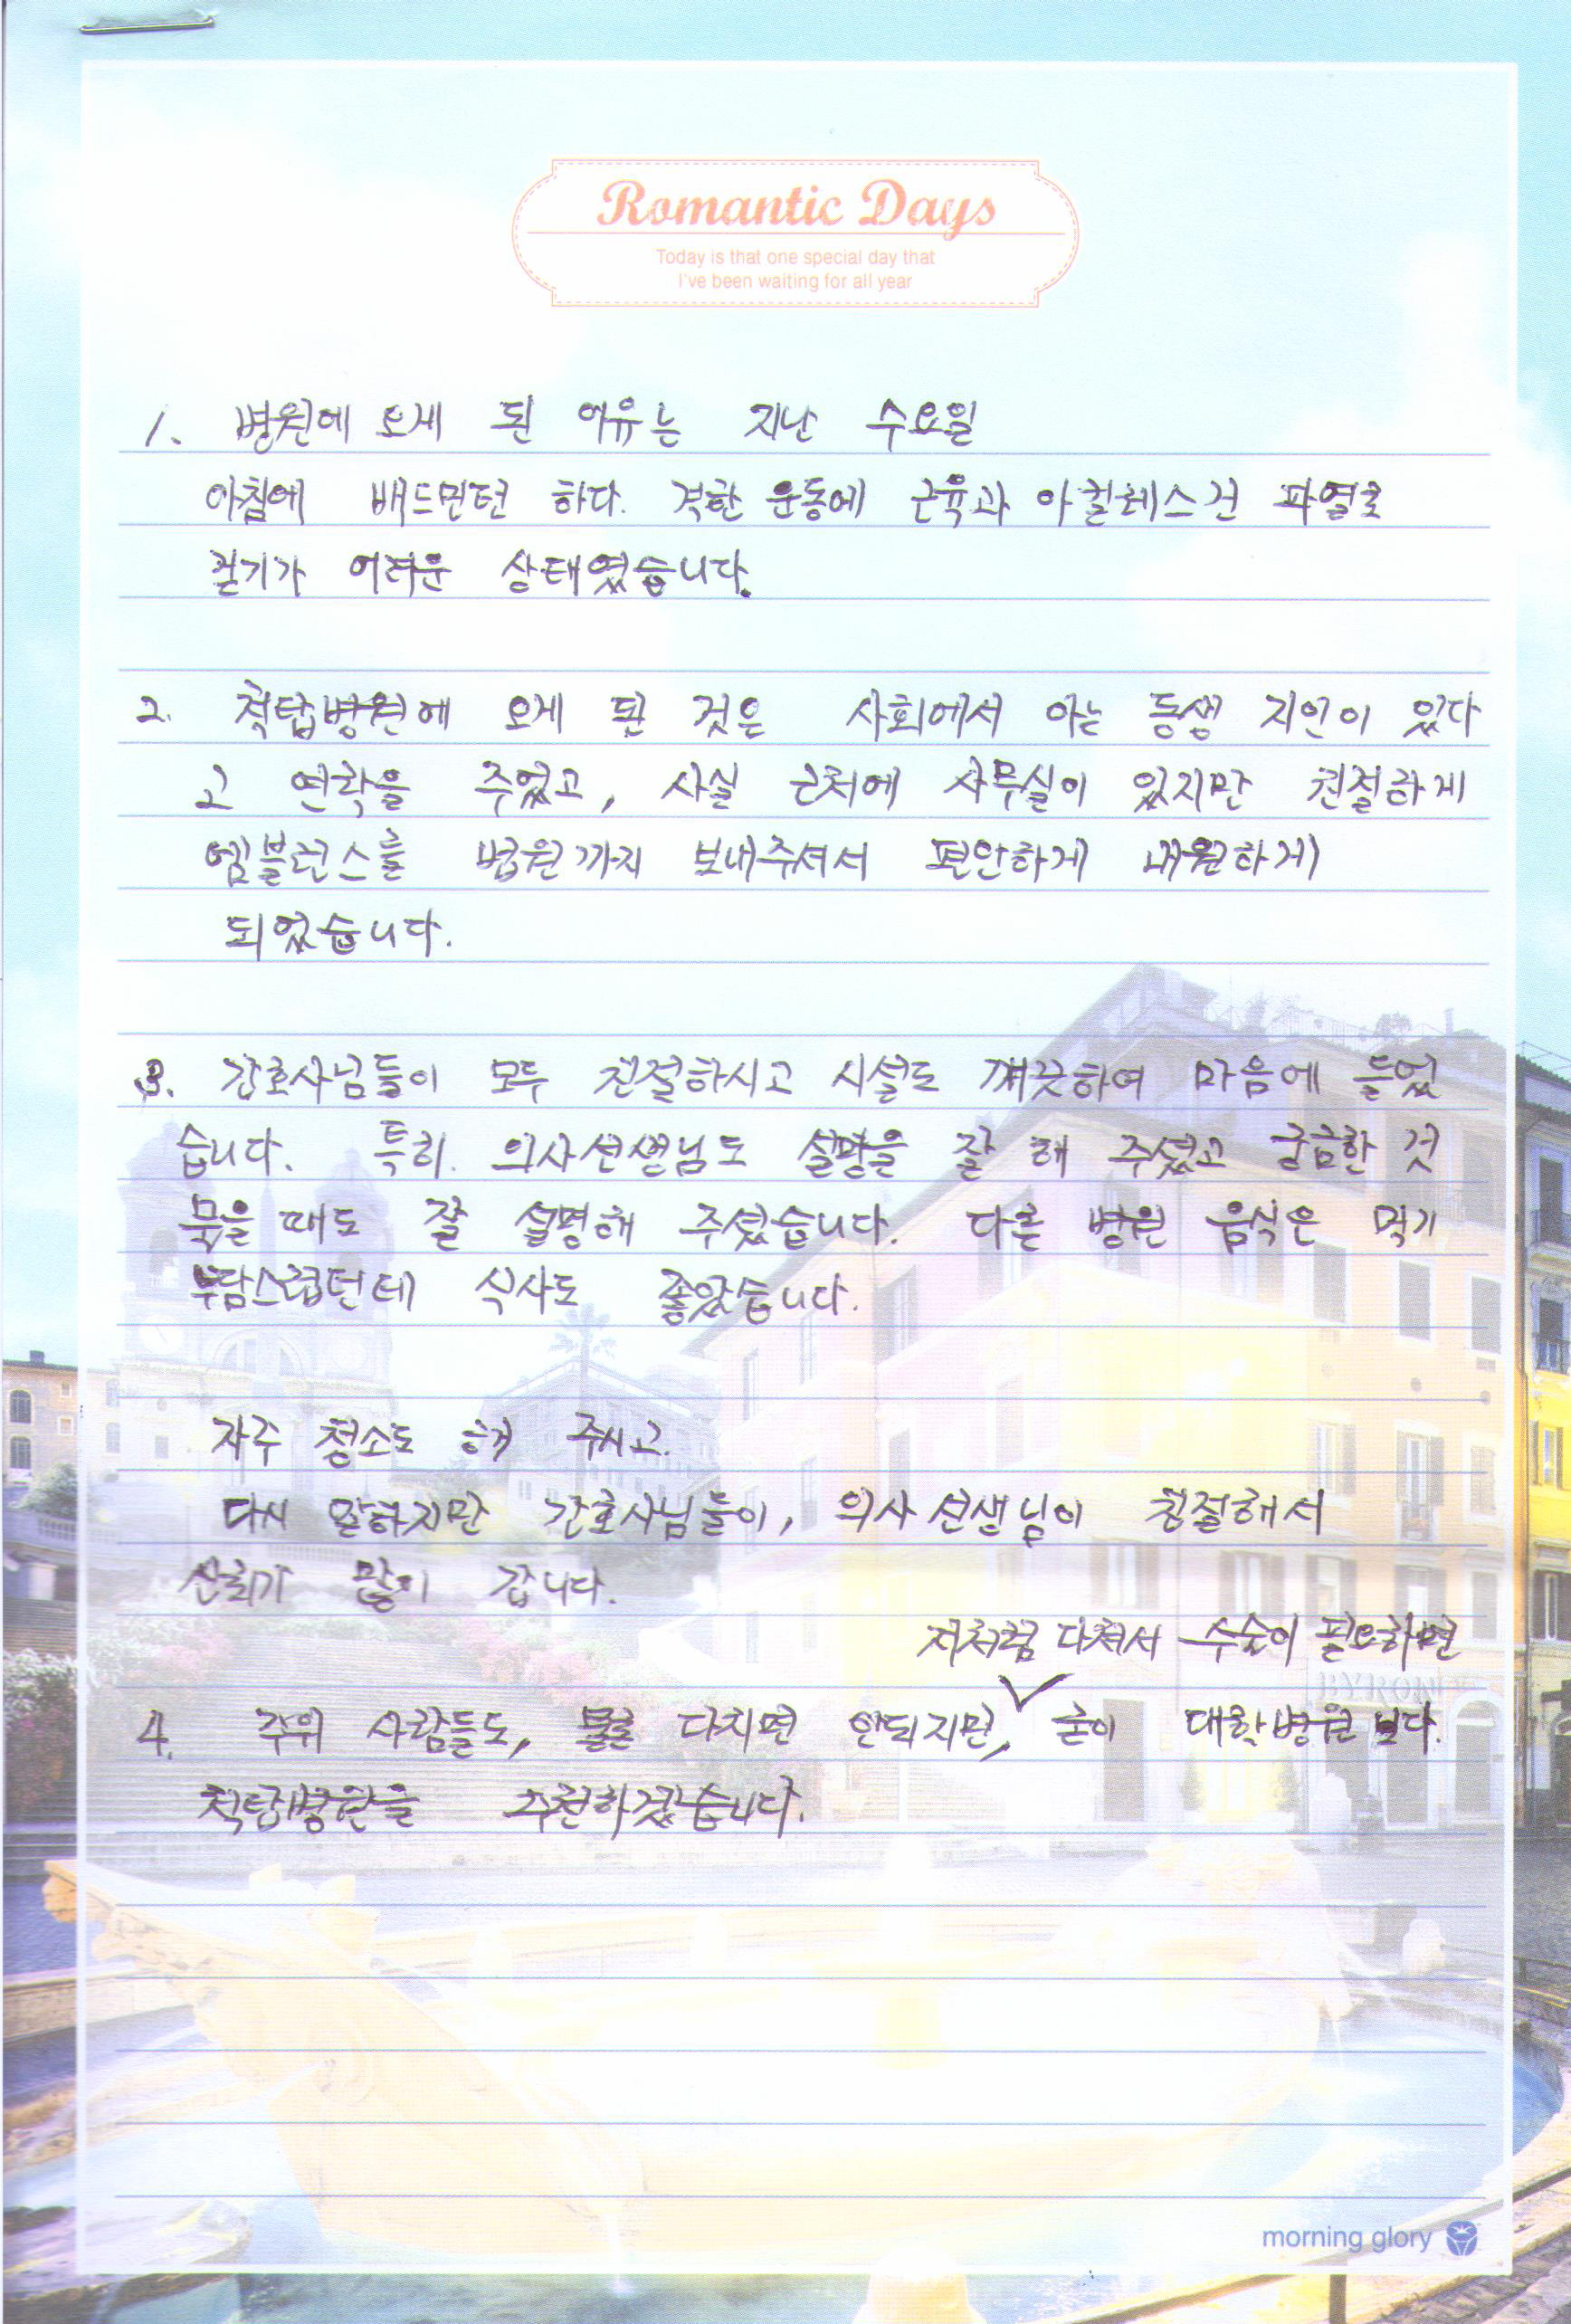 Romantic Days
Today is that one special day that
I've been waiting for all year
1. 병원에 오게 된 이유는 지난 수요일
아침에 배드민턴 하다. 격한 운동에 근육과 아킬레스건 파열로
걷기가 어려운 상태였습니다.
2. 척탑병원에 오게 된 것은 사회에서 아는 동생 지인이 있다
고 연락을 주었고, 사실 근처에 사무실이 있지만 친절하게
엠블런스를 병원까지 보내주셔서 편안하게 내원하게
되었습니다.
3. 간호사님들이 모두 친절하시고 시설도 깨끗하여 마음에 들었
습니다. 특히. 의사선생님도 설명을 잘 해 주셨고 궁금한 것
묵을 때도 잘 설명해 주셨습니다. 다른 병원 음식은 먹기
부담스럽던데 식사도 좋았습니다.
자주 청소도 해 주시고.
다시 말하지만 간호사님들이, 의사 선생님이 친절해서
신뢰가 많이 갑니다.
저처럼 다쳐서 수술이 필요하면
4. 주위 사람들도, 물론 다치면 안되지만, 굳이 대학병원 보다.
척탑병원을 추천하겠습니다.
morning glory